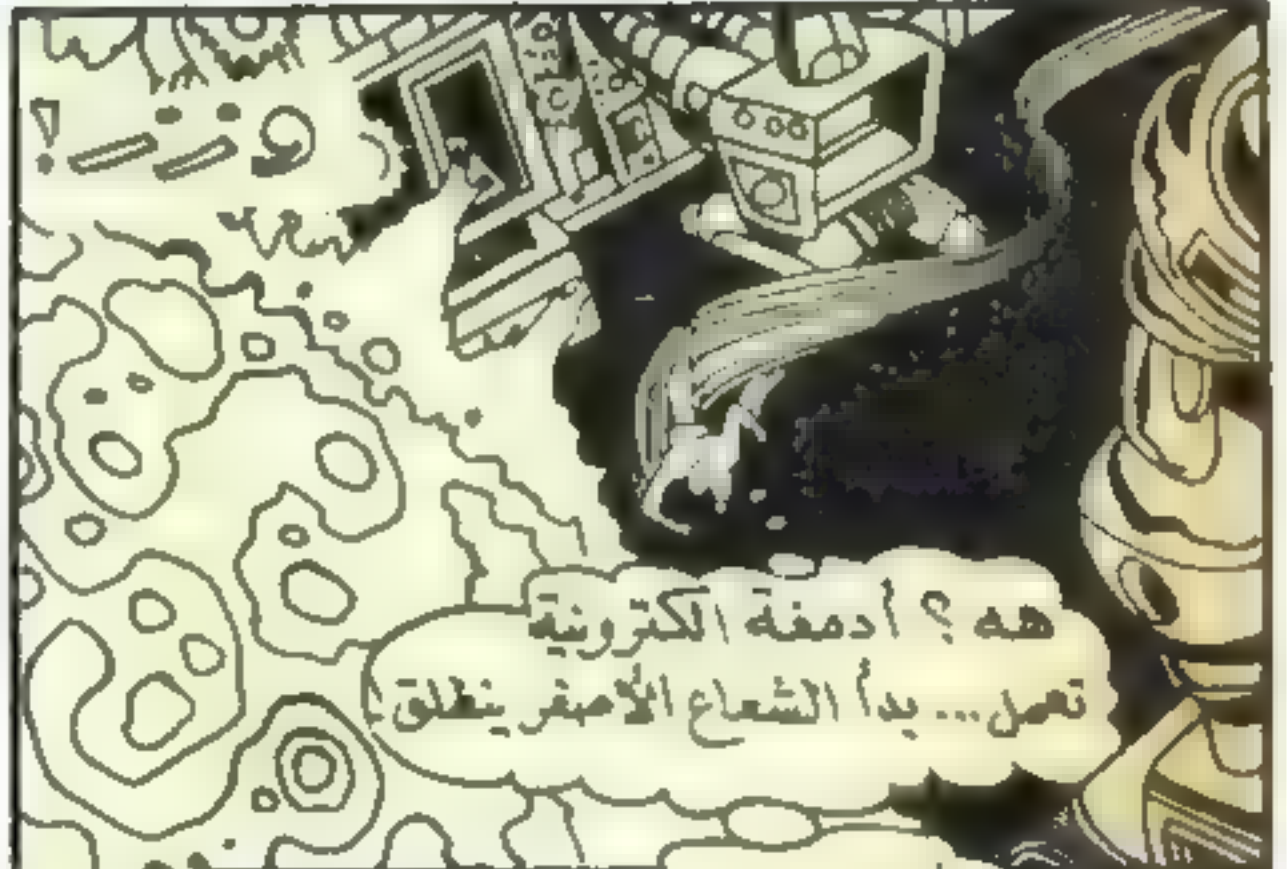 هه ؟ أدمغة الكترونية
تعمل... بدأ الشعاع الأصفر ينطلق